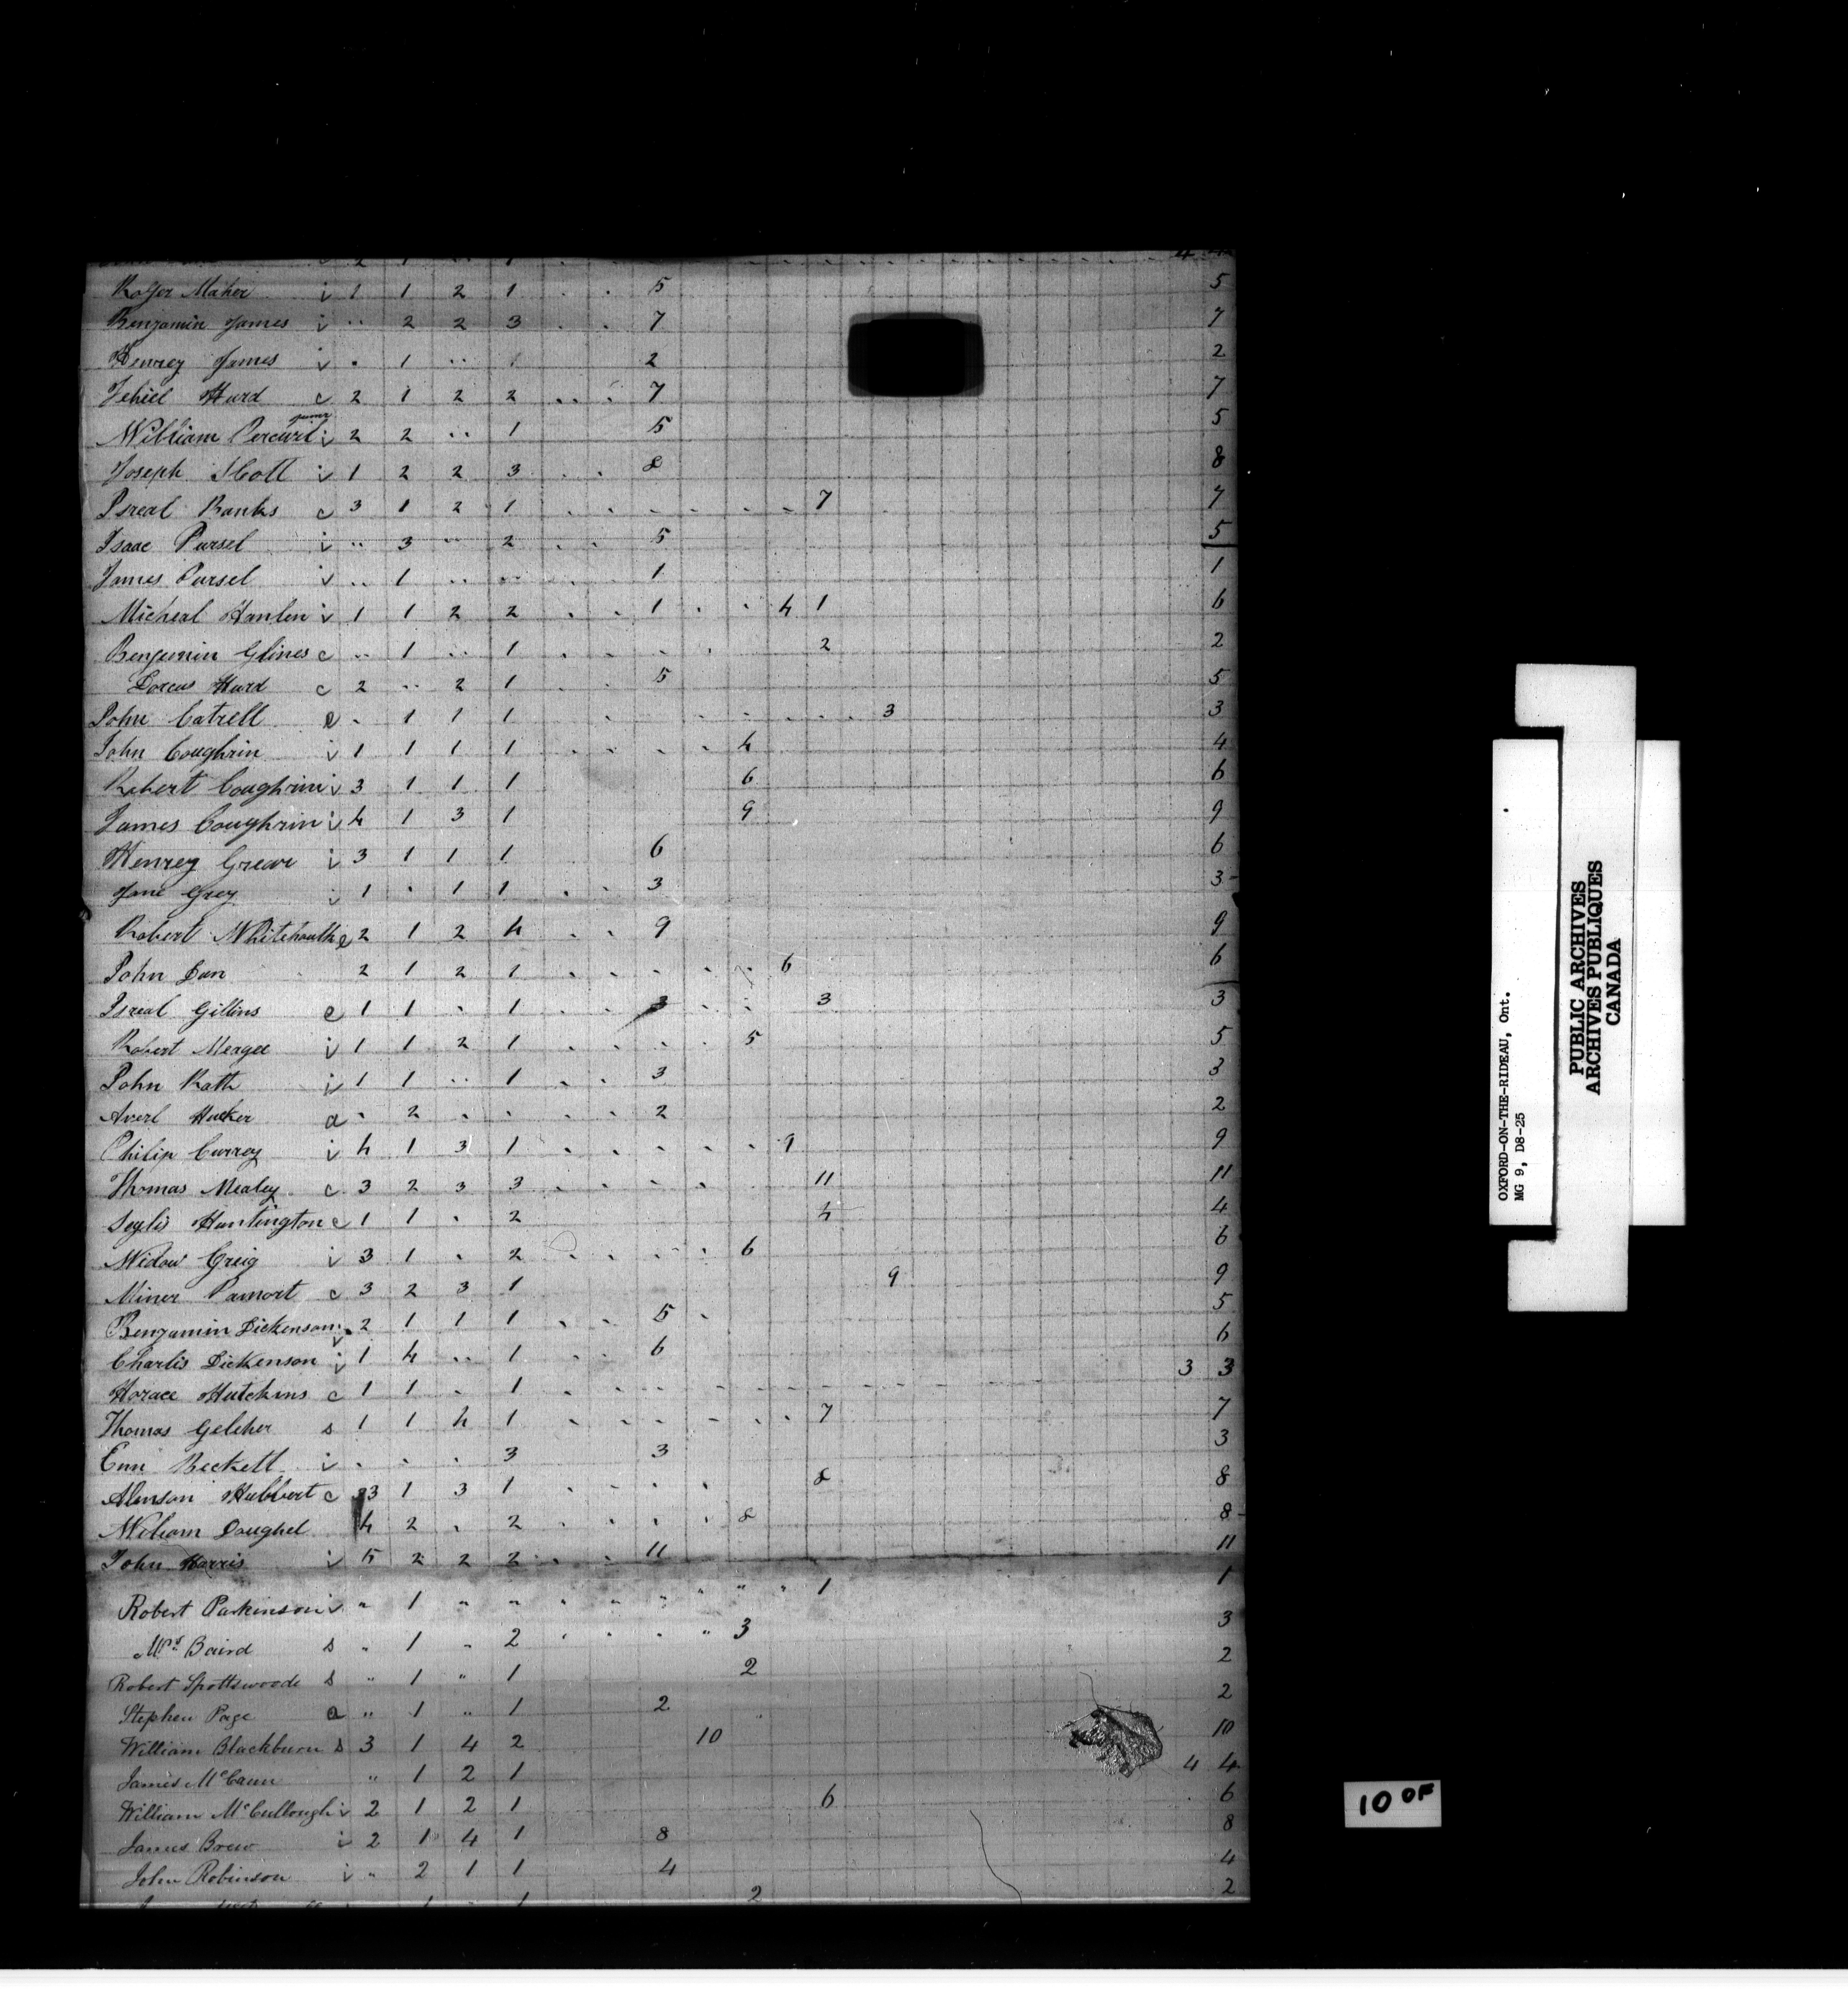 Roger Maher i 1 1 2 1 . . 5 5
Benjamin James i .. 2 2 3 . . 7 7
Henrey James i . 1 .. 1 2 2
Jehiel Hurd c 2 1 2 2 .. . 7 7
William junr i 2 2 .. 1 5 5
Joseph Scott i 1 2 2 3 . . 8 8
Isreal Banks c 3 1 2 1 . . . . . . . 7 7
Isaac Pursel i .. 3 .. 2 . . 5 5
James Pursel i .. 1 .. .. . . 1 1
Micheal Hanlen i 1 1 2 2 . . 1 . . 4 1 6
Benjemin Glines c .. 1 .. 1 . . . . 2 2
Dorcus Hurd c 2 .. 2 1 . . 5 5
John Catrell e . 1 1 1 . . . . . . . 3 3
John Coughrin i 1 1 1 1 . . . . 4 4
Robert Coughrin i 3 1 1 1 6 6
James Coughrin i 4 1 3 1 9 9
Henrey Grear i 3 1 1 1 6 6
Jane Grey i 1 . 1 1 . . 3 3
Robert e 2 1 2 4 . . 9 9
John Dan 2 1 2 1 . . . . . 6 6
Isreal Gillins e 1 1 . 1 . . 3 . . 3 3
Robert i 1 1 2 1 . . . . 5 5
John Rath i 1 1 .. 1 . . 3 3
Averl Hucker a . 2 . . . . 2 2
Philip Currey i 4 1 3 1 . . . . . 9 9
Thomas Mealey c 3 2 3 3 . . . . 11 11
Huntington c 1 1 . 2 4 4
Widow Greig i 3 1 . 2 . . . . 6 6
Miner Pamort c 3 2 3 1 9 9
Benjamin Dickenson i 2 1 1 1 . . 5 . 5
Charlis Dickenson i 1 4 .. 1 . . 6 6
Horace Hutchins c 1 1 . 1 . . . . . . . . 3 3
Thomas Gelcher s 1 1 4 1 . . . . . . 7 7
Enn Beckett i . . . 3 3 3
Alenson Hubbert c 3 1 3 1 . . . . 8 8
William Doughel 4 2 . 2 . . . . 8 8
John Harris i 5 2 2 2 . . 11 11
Robert Parkinson i " 1 " " " " " " " " 1 1
Mrs Baird s " 1 " 2 . . . " 3 3
Robert Spottswoode s " 1 " 1 2 2
Stephen Page a " 1 " 1 2 2
William Blackburn s 3 1 4 2 10 10
James McCann " 1 2 1 4 4
William McCullough i 2 1 2 1 6 6
James Brew i 2 1 4 1 8 8
John Robinson i " 2 1 1 4 4
1 . 1 2 2
OXFORD-ON-THE-RIDEAU, Ont.
MG 9, D8-25
PUBLIC ARCHIVES
ARCHIVES PUBLIQUES
CANADA
10 OF